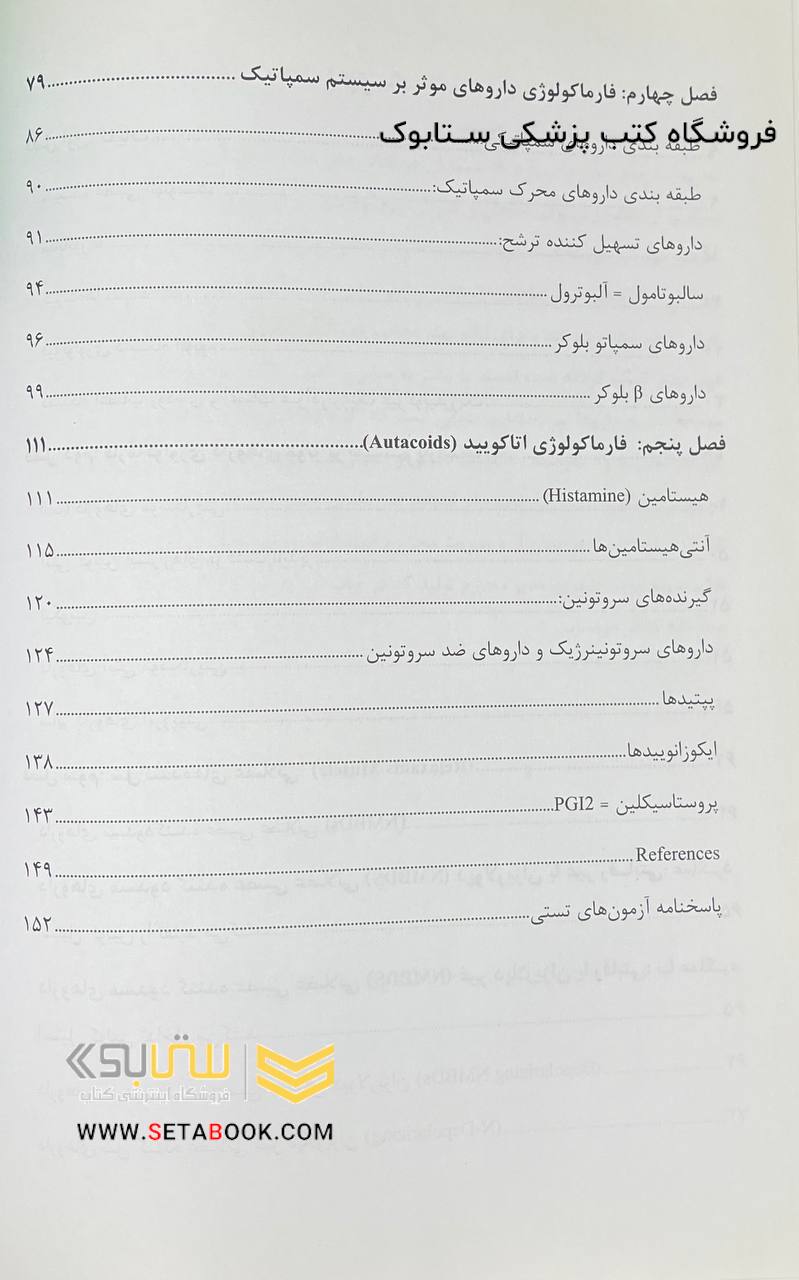 فصل چهارم: فارماکولوژی داروهای موثر بر سیستم سمپاتیک ........ ۷۹
فروشگاه کتب پزشکی ستابوک
طبقه بندی داروهای سمپاتیکی ........ ۸۶
طبقه بندی داروهای محرک سمپاتیک: ........ ۹۰
داروهای تسهیل کننده ترشح: ........ ۹۱
سالبوتامول = آلبوترول ........ ۹۴
داروهای سمپاتو بلوکر ........ ۹۶
داروهای β بلوکر ........ ۹۹
فصل پنجم: فارماکولوژی اتاکویید (Autacoids) ........ ۱۱۱
هیستامین (Histamine) ........ ۱۱۱
آنتی‌هیستامین‌ها ........ ۱۱۵
گیرنده‌های سروتونین: ........ ۱۲۰
داروهای سروتونینرژیک و داروهای ضد سروتونین ........ ۱۲۴
پپتیدها ........ ۱۲۷
ایکوزانوییدها ........ ۱۳۸
پروستاسیکلین = PGI2 ........ ۱۴۳
References ........ ۱۴۹
پاسخنامه آزمون‌های تستی ........ ۱۵۲
ستابوک
فروشگاه اینترنتی کتاب
WWW.SETABOOK.COM